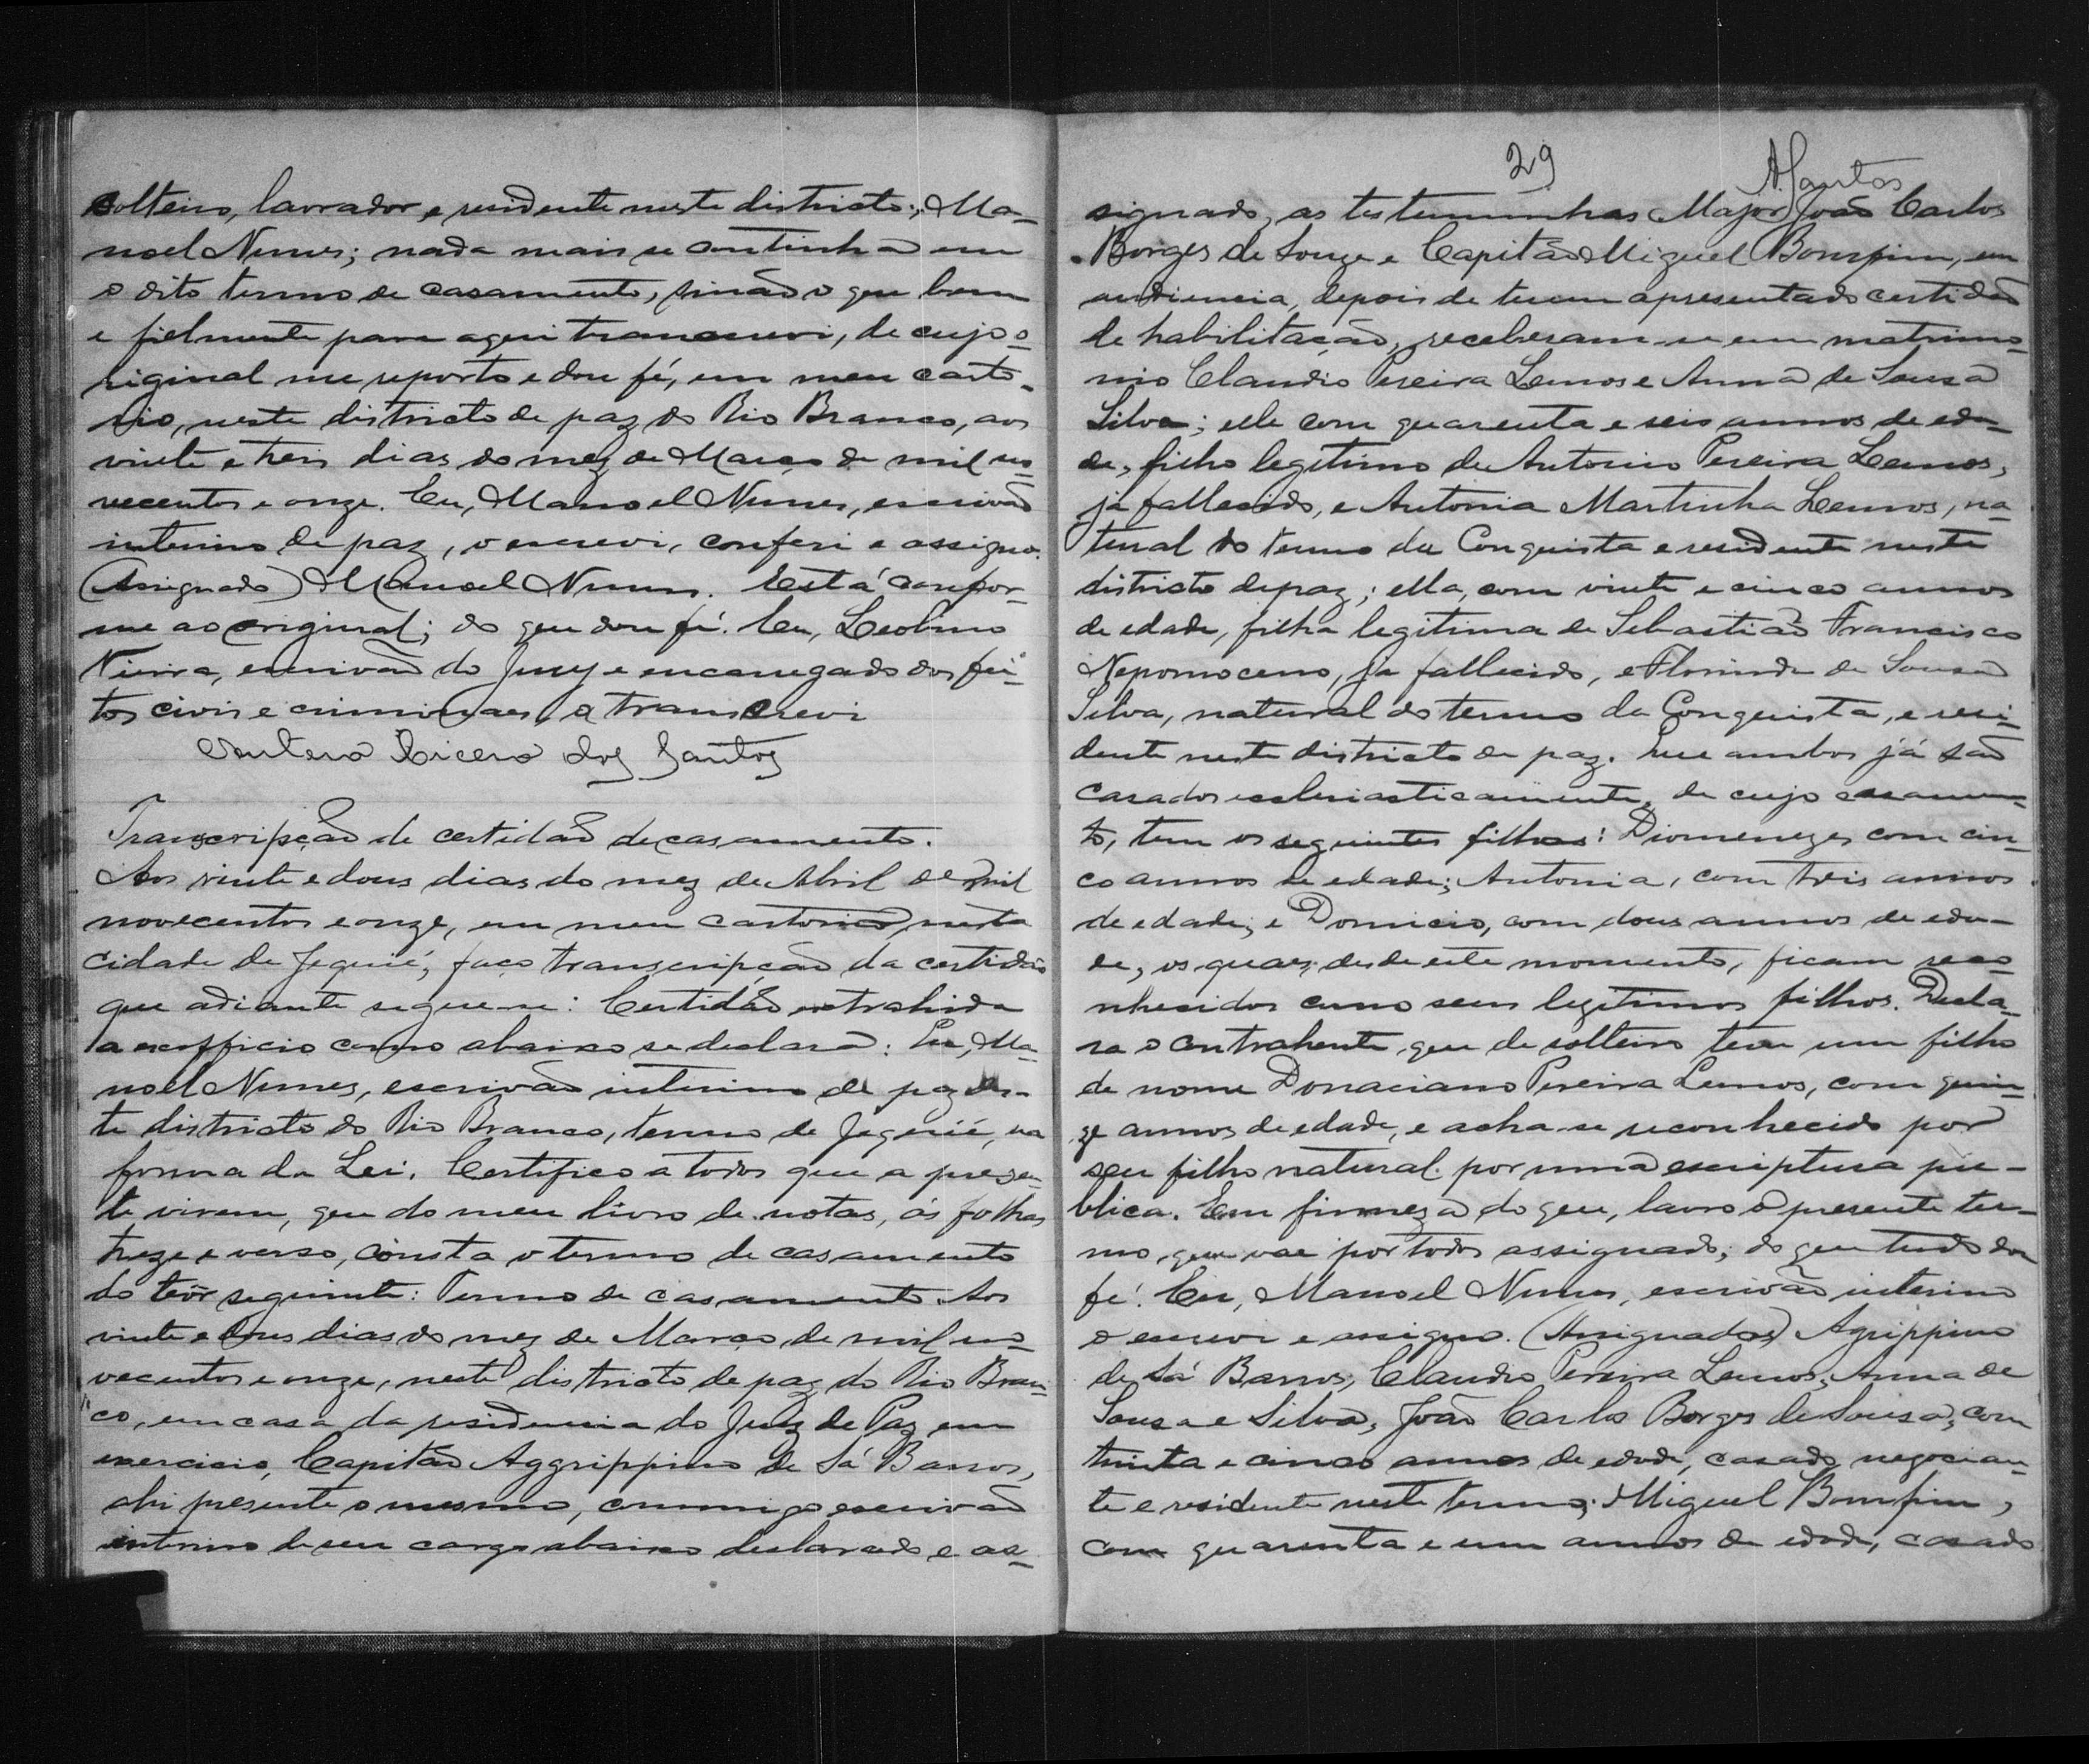 solteiro, lavrador e residente neste districto; Ma-
noel Nunes; nada mais se continha em
o dito termo de casamento, sinão o que bem
e fielmente para aqui transcrevi, de cujo o-
riginal me reporto e dou fé, em meu carto-
rio, neste districto de paz do Rio Branco, aos
vinte e treis dias do mez de Março de mil no-
vecentos e onze. Eu, Manoel Nunes, escrivão
interino de paz, o escrevi, conferi e assigno.
(Assignado) Manoel Nunes. Está confor-
me ao original; do que dou fé. Eu, Leolino
escrivão do Jury e encarregado dos fei-
tos civis e criminaes, a transcrevi
Cicero dos Santos
Transcripção de certidão de casamento.
Aos vinte e dous dias do mez de Abril de mil
novecentos e onze, em meu cartorio, nesta
cidade de Jequié, faço transcripção da certidão
que adiante segue-se: Certidão extrahida
a ex-officio como abaixo se declara: Eu, Ma-
noel Nunes, escrivão interino de paz des-
te districto do Rio Branco, termo de Jequié, na
forma da Lei. Certifico a todos que a presen-
te virem, que do meu livro de notas, ás folhas
treze e verso, consta o termo de casamento
do teôr seguinte: Termo de casamento. Aos
vinte e dous dias do mez de Março de mil no-
vecentos e onze, neste districto de paz do Rio Bran-
co, em casa da residencia do Juiz de Paz em
exercicio, Capitão Aggrippino de Sá Barros,
ahi presente o mesmo, commigo escrivão
interino de seu cargo abaixo declarado e as-
29
A. Santos
signado, as testemunhas Major João Carlos
Borges de Souza e Capitão Miguel Bomfim, em
audiencia, depois de terem apresentado certidão
de habilitação, receberam-se em matrimo-
nio Claudio Pereira Lemos e Anna de Sousa
Silva; elle com quarenta e seis annos de eda-
de, filho legitimo de Antonio Pereira Lemos,
já fallecido, e Antonia Martinha Lemos, na-
tural do termo da Conquista e residente neste
districto de paz; ella, com vinte e cinco annos
de edade, filha legitima de Sebastião Francisco
Nepomoceno, já fallecido, e Florinda de Sousa
Silva, natural do termo da Conquista, e resi-
dente neste districto de paz. Que ambos já são
casados ecclesiasticamente, de cujo casamen-
to, tem os seguintes filhos: Diomenezes com cin-
co annos de edade; Antonia, com treis annos
de edade; e Domicio, com dous annos de eda-
de, os quaes, desde este momento, ficam reco-
nhecidos como seus legitimos filhos. Decla-
ra o contrahente, que de solteiro teve um filho
de nome Donaciano Pereira Lemos, com quin-
ze annos de edade, e acha-se reconhecido por
seu filho natural por uma escriptura pu-
blica. Em firmeza do que, lavro o presente ter-
mo, que vae por todos assignado; do que tudo dou
fé. Eu, Manoel Nunes, escrivão interino
o escrevi e assigno. (Assignados) Agrippino
de Sá Barros, Claudio Pereira Lemos, Anna de
Sousa e Silva, João Carlos Borges de Sousa, com
trinta e cinco annos de edade, casado, negocian-
te e residente neste termo; Miguel Bomfim,
com quarenta e um annos de edade, casado